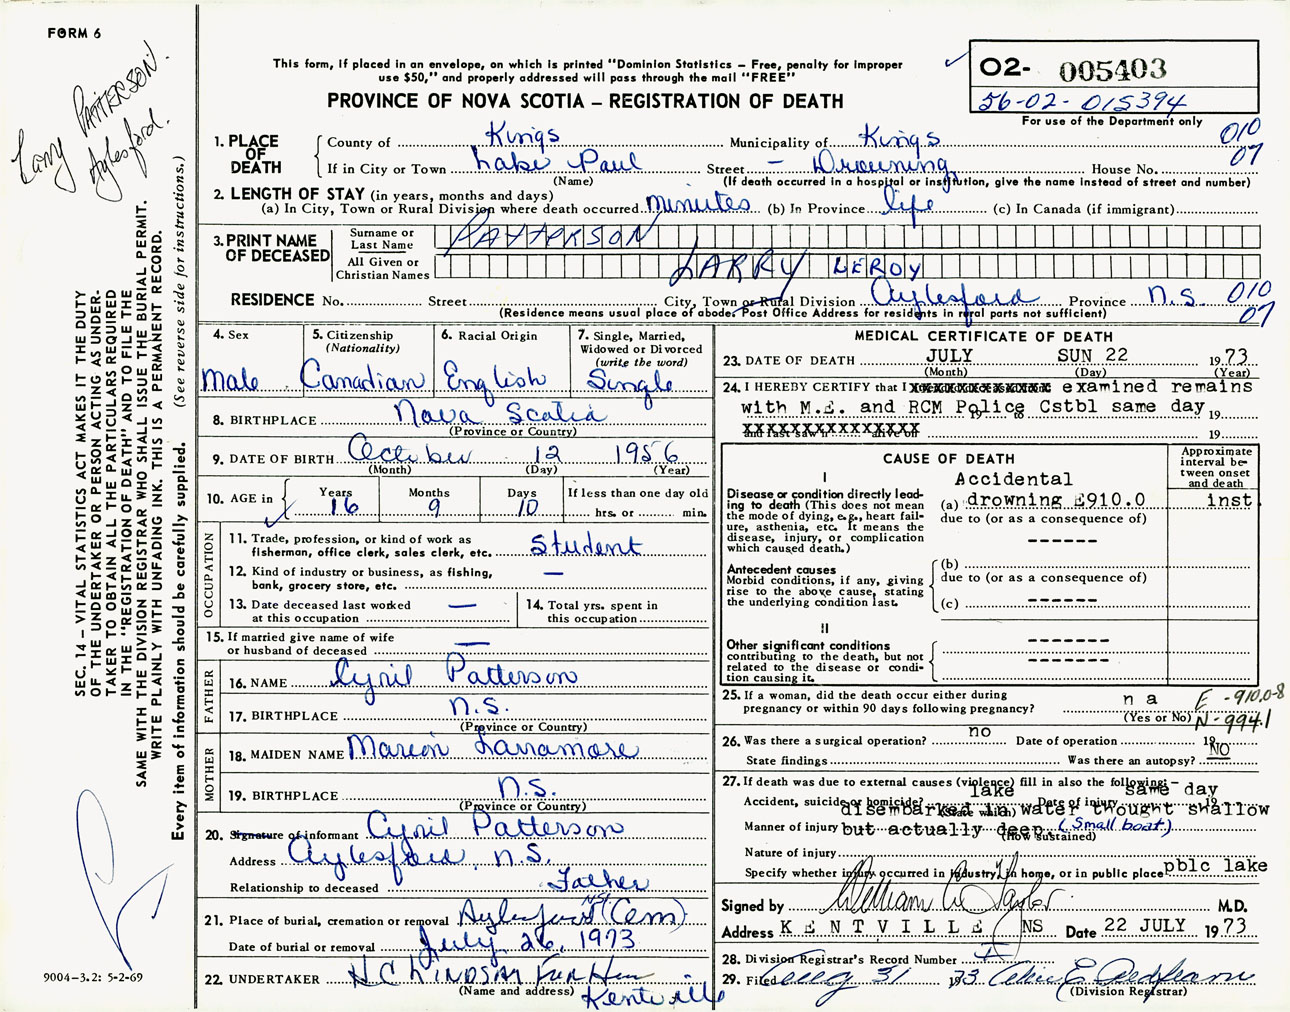 FORM 6
Larry PATTERSON.
Aylesford.
This form, if placed in an envelope, on which is printed "Dominion Statistics – Free, penalty for improper
use $50," and properly addressed will pass through the mail "FREE"
PROVINCE OF NOVA SCOTIA – REGISTRATION OF DEATH
02- 005403
56-02-015394
For use of the Department only
010
07
1. PLACE OF DEATH
County of Kings Municipality of Kings
If in City or Town Lake Paul Street – Drowning House No.
(Name) (If death occurred in a hospital or institution, give the name instead of street and number)
2. LENGTH OF STAY (in years, months and days)
(a) In City, Town or Rural Division where death occurred minutes (b) In Province life (c) In Canada (if immigrant)
3. PRINT NAME OF DECEASED
Surname or Last Name PATTERSON
All Given or Christian Names LARRY LEROY
RESIDENCE No. Street City, Town or Rural Division Aylesford Province N.S. 010
07
(Residence means usual place of abode. Post Office Address for residents in rural parts not sufficient)
4. Sex
Male
5. Citizenship
(Nationality)
Canadian
6. Racial Origin
English
7. Single, Married,
Widowed or Divorced
(write the word)
Single
8. BIRTHPLACE Nova Scotia
(Province or Country)
9. DATE OF BIRTH October 12 1956
(Month) (Day) (Year)
10. AGE in
Years Months Days If less than one day old
16 9 10 hrs. or min.
OCCUPATION
11. Trade, profession, or kind of work as
fisherman, office clerk, sales clerk, etc. Student
12. Kind of industry or business, as fishing,
bank, grocery store, etc. —
13. Date deceased last worked
at this occupation —
14. Total yrs. spent in
this occupation
15. If married give name of wife
or husband of deceased —
FATHER
16. NAME Cyril Patterson
17. BIRTHPLACE N.S.
(Province or Country)
MOTHER
18. MAIDEN NAME Marion Larramore
19. BIRTHPLACE N.S.
(Province or Country)
20. Signature of informant Cyril Patterson
Address Aylesford, N.S.
Relationship to deceased Father
21. Place of burial, cremation or removal Aylesford NS. (Cem)
Date of burial or removal July 26, 1973
22. UNDERTAKER H C LINDSAY Fun Hm
(Name and address) Kentville
MEDICAL CERTIFICATE OF DEATH
23. DATE OF DEATH JULY SUN 22 1973
(Month) (Day) (Year)
24. I HEREBY CERTIFY that I xxxxxxxxxxxxxxxxxx examined remains
with M.E. and RCM Police Cstbl same day 19
XXXXXXXXXXXXXXXX 19
CAUSE OF DEATH
Approximate
interval be-
tween onset
and death
I
Disease or condition directly lead-
ing to death (This does not mean
the mode of dying, e.g., heart fail-
ure, asthenia, etc. It means the
disease, injury, or complication
which caused death.)
Accidental
(a) drowning E910.0 inst
due to (or as a consequence of)
-------
Antecedent causes
Morbid conditions, if any, giving
rise to the above cause, stating
the underlying condition last.
(b)
due to (or as a consequence of)
(c) -------
II
Other significant conditions
contributing to the death, but not
related to the disease or condi-
tion causing it.
-------
-------
25. If a woman, did the death occur either during
pregnancy or within 90 days following pregnancy? n a
(Yes or No)
E -910.0-8
N-994.1
26. Was there a surgical operation? no Date of operation 19
State findings Was there an autopsy? NO
27. If death was due to external causes (violence) fill in also the following:–
Accident, suicide or homicide? lake Date of injury same day 19
(State which)
disembarked in water thought shallow
Manner of injury but actually deep. (Small boat)
(How sustained)
Nature of injury
Specify whether injury occurred in industry, in home, or in public place pblc lake
Signed by William A. Taylor M.D.
Address KENTVILLE NS Date 22 JULY 1973
28. Division Registrar's Record Number
29. Filed Aug 31 1973
(Division Registrar)
SEC. 14 – VITAL STATISTICS ACT MAKES IT THE DUTY
OF THE UNDERTAKER OR PERSON ACTING AS UNDER-
TAKER TO OBTAIN ALL THE PARTICULARS REQUIRED
IN THE "REGISTRATION OF DEATH" AND TO FILE THE
SAME WITH THE DIVISION REGISTRAR WHO SHALL ISSUE THE BURIAL PERMIT.
WRITE PLAINLY WITH UNFADING INK. THIS IS A PERMANENT RECORD.
Every item of information should be carefully supplied. (See reverse side for instructions.)
9004-3.2: 5-2-69